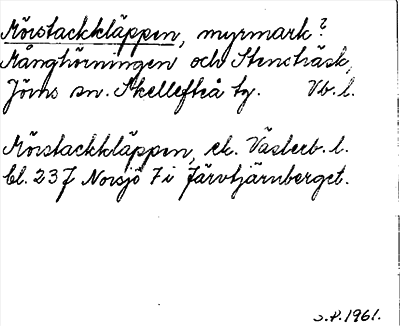 Mörstackkläppen, myrmark?
Månghörningen och Stensträsk,
Jörns sn. Skellefteå tg. Vb. l.
Mörstackkläppen, ek. Västerb. l.
bl. 237 Norsjö 7 i Järvtjärnberget.
S.P. 1961.